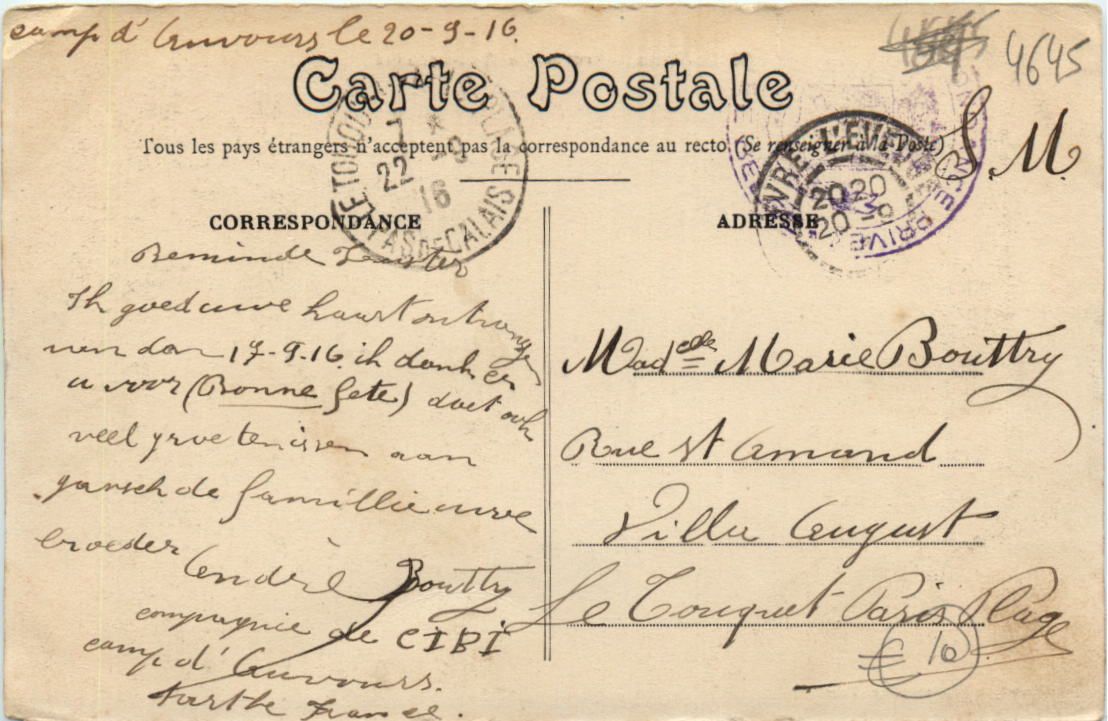 camp d'Auvours le 20-9-16.
4645
Carte Postale
Tous les pays étrangers n'acceptent pas la correspondance au recto (Se renseigner à la Poste)
S.M.
LE TOUQUET PLAGE
7 *
22 -9
16
PAS DE CALAIS
YVRE-L'EVEQUE
20 20
20 -9
CORRESPONDANCE
ADRESSE
Beminde Zuster
Ih goed uwe kaart ontvangen
van dan 17-9-16. ik dank er
u voor (Bonne fete) doet ook
veel groetenissen aan
gansch de famillie uwe
broeder
Andrè Bouttry
compagnie de CIBI
camp d'Auvours.
Sarthe France.
Madelle Marie Bouttry
Rue st Amand
Villa August
Le Touquet Paris Plage
€ 10